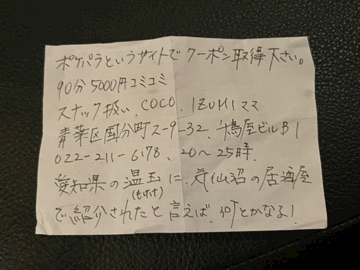 ポケパラというサイトでクーポン取得下さい。
90分5000円コミコミ
スナック扱い、COCO、IZUMIママ
青葉区国分町2-9-32、鳥屋ビルB1
022-211-6178、20〜25時、
愛知県の温玉に、気仙沼の居酒屋
で紹介されたと言えば、何とかなる!